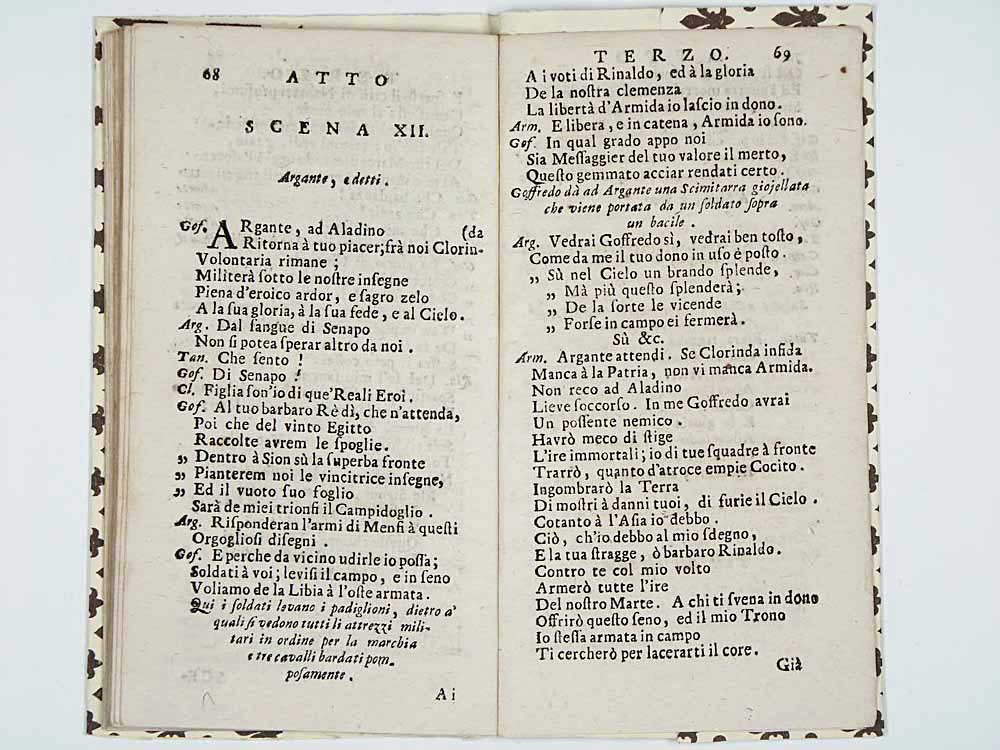 68 ATTO
SCENA XII.
Argante, e detti.
Gof. ARgante, ad Aladino (da
Ritorna à tuo piacer; frà noi Clorin-
Volontaria rimane;
Militerà ſotto le noſtre inſegne
Piena d'eroico ardor, e ſagro zelo
A la ſua gloria, à la ſua fede, e al Cielo.
Arg. Dal ſangue di Senapo
Non ſi potea ſperar altro da noi.
Tan. Che ſento!
Gof. Di Senapo!
Cl. Figlia ſon'io di que'Reali Eroi.
Gof. Al tuo barbaro Rè dì, che n'attenda,
Poi che del vinto Egitto
Raccolte avrem le ſpoglie.
„ Dentro à Sion sù la ſuperba fronte
„ Pianterem noi le vincitrice inſegne,
„ Ed il vuoto ſuo foglio
Sarà de miei trionfi il Campidoglio.
Arg. Riſponderan l'armi di Menfi à queſti
Orgoglioſi diſegni.
Gof. E perche da vicino udirle io poſſa;
Soldati à voi; leviſi il campo, e in ſeno
Voliamo de la Libia à l'oſte armata.
Qui i ſoldati levano i padiglioni, dietro a'
quali ſi vedono tutti li attrezzi mili-
tari in ordine per la marchia
e tre cavalli bardati pom-
poſamente.
Ai
TERZO. 69
A i voti di Rinaldo, ed à la gloria
De la noſtra clemenza
La libertà d'Armida io laſcio in dono.
Arm. E libera, e in catena, Armida io ſono.
Gof. In qual grado appo noi
Sia Meſſaggier del tuo valore il merto,
Queſto gemmato acciar rendati certo.
Goffredo dà ad Argante una Scimitarra giojellata
che viene portata da un ſoldato ſopra
un bacile.
Arg. Vedrai Goffredo sì, vedrai ben toſto,
Come da me il tuo dono in uſo è poſto.
„ Sù nel Cielo un brando ſplende,
„ Mà più queſto ſplenderà;
„ De la ſorte le vicende
„ Forſe in campo ei fermerà.
Sù &c.
Arm. Argante attendi. Se Clorinda infida
Manca à la Patria, non vi manca Armida.
Non reco ad Aladino
Lieve ſoccorſo. In me Goffredo avrai
Un poſſente nemico.
Havrò meco di ſtige
L'ire immortali; io di tue ſquadre à fronte
Trarrò, quanto d'atroce empie Cocito.
Ingombrarò la Terra
Di moſtri à danni tuoi, di furie il Cielo.
Cotanto à l'Aſia io debbo.
Ciò, ch'io debbo al mio ſdegno,
E la tua ſtragge, ò barbaro Rinaldo.
Contro te col mio volto
Armerò tutte l'ire
Del noſtro Marte. A chi ti ſvena in dono
Offrirò queſto ſeno, ed il mio Trono
Io ſteſſa armata in campo
Ti cercherò per lacerarti il core.
Già